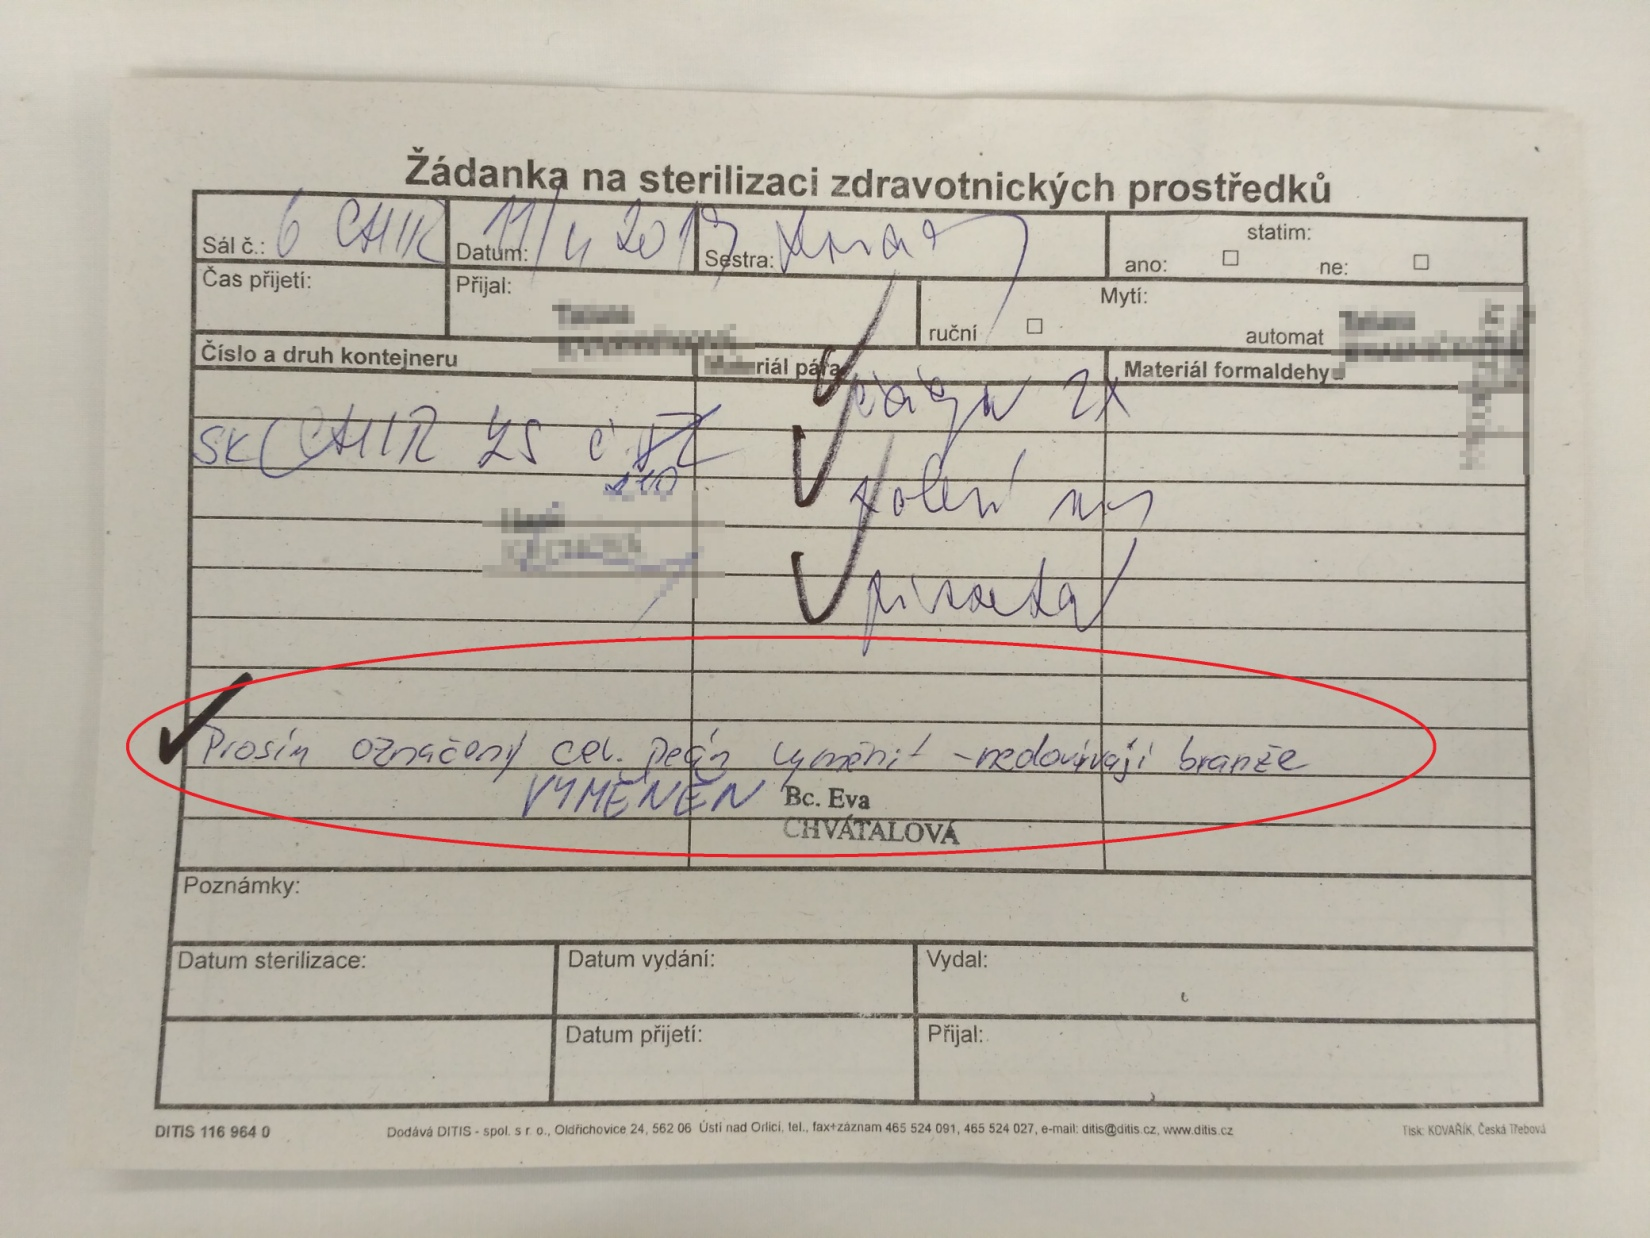 Žádanka na sterilizaci zdravotnických prostředků
Sál č.: 6 CHIR Datum: 11/4 2019 Sestra:
statim:
ano: ☐ ne: ☐
Čas přijetí: Přijal:
Mytí:
ruční ☐ automat
Číslo a druh kontejneru riál pára Materiál formaldehy
2x
SK CHIR ZS
kolení
pinzeta
Prosím označený cev. peán vyměnit - nedovírají branže
VYMĚNĚN Bc. Eva
CHVÁTALOVÁ
Poznámky:
Datum sterilizace: Datum vydání: Vydal:
Datum přijetí: Přijal:
DITIS 116 964 0 Dodává DITIS - spol. s r. o., Oldřichovice 24, 562 06 Ústí nad Orlicí, tel., fax+záznam 465 524 091, 465 524 027, e-mail: ditis@ditis.cz, www.ditis.cz Tisk: KOVAŘÍK, Česká Třebová